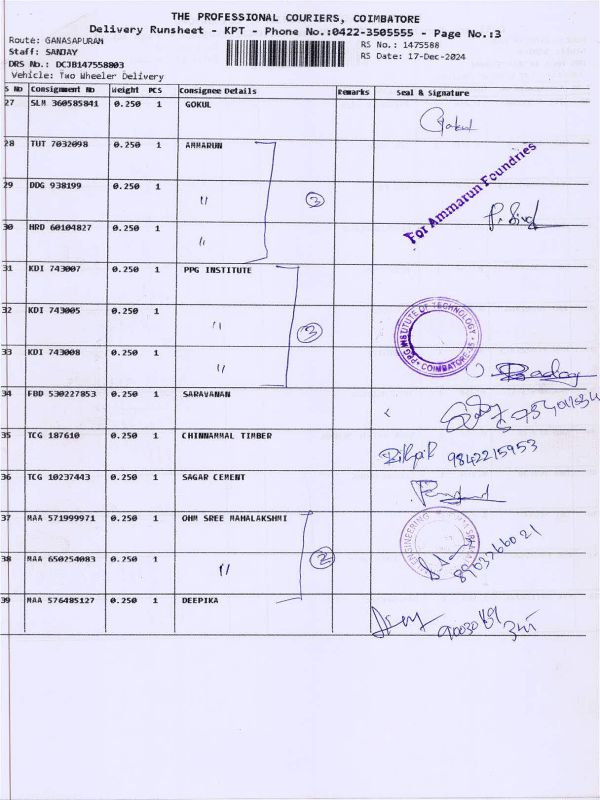 THE PROFESSIONAL COURIERS, COIMBATORE
Delivery Runsheet - KPT - Phone No.:0422-3505555 - Page No.:3
Route: GANASAPURAM
RS No.: 1475588
Staff: SANJAY
RS Date: 17-Dec-2024
DRS No.: DCJB147558803
Vehicle: Two Wheeler Delivery
S No Consignment No Weight PCS Consignee Details Remarks Seal & Signature
27 SLM 360585841 0.250 1 GOKUL
Gokul
28 TUT 7032098 0.250 1 AMMARUN
For Ammarun Foundries
29 DDG 938199 0.250 1 " 3
30 HRD 60104827 0.250 1 "
31 KDI 743007 0.250 1 PPG INSTITUTE
32 KDI 743005 0.250 1 " 3
PPG INSTITUTE OF TECHNOLOGY COIMBATORE-35
33 KDI 743008 0.250 1 "
34 FBD 530227853 0.250 1 SARAVANAN
35 TCG 187610 0.250 1 CHINNAMMAL TIMBER
9842215953
36 TCG 10237443 0.250 1 SAGAR CEMENT
37 MAA 571999971 0.250 1 OHM SREE MAHALAKSHMI
ENGINEERING
38 MAA 650254083 0.250 1 " 2
39 MAA 576485127 0.250 1 DEEPIKA